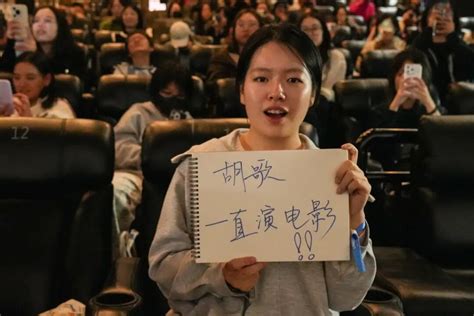 12
胡歌
一直演电影
!!